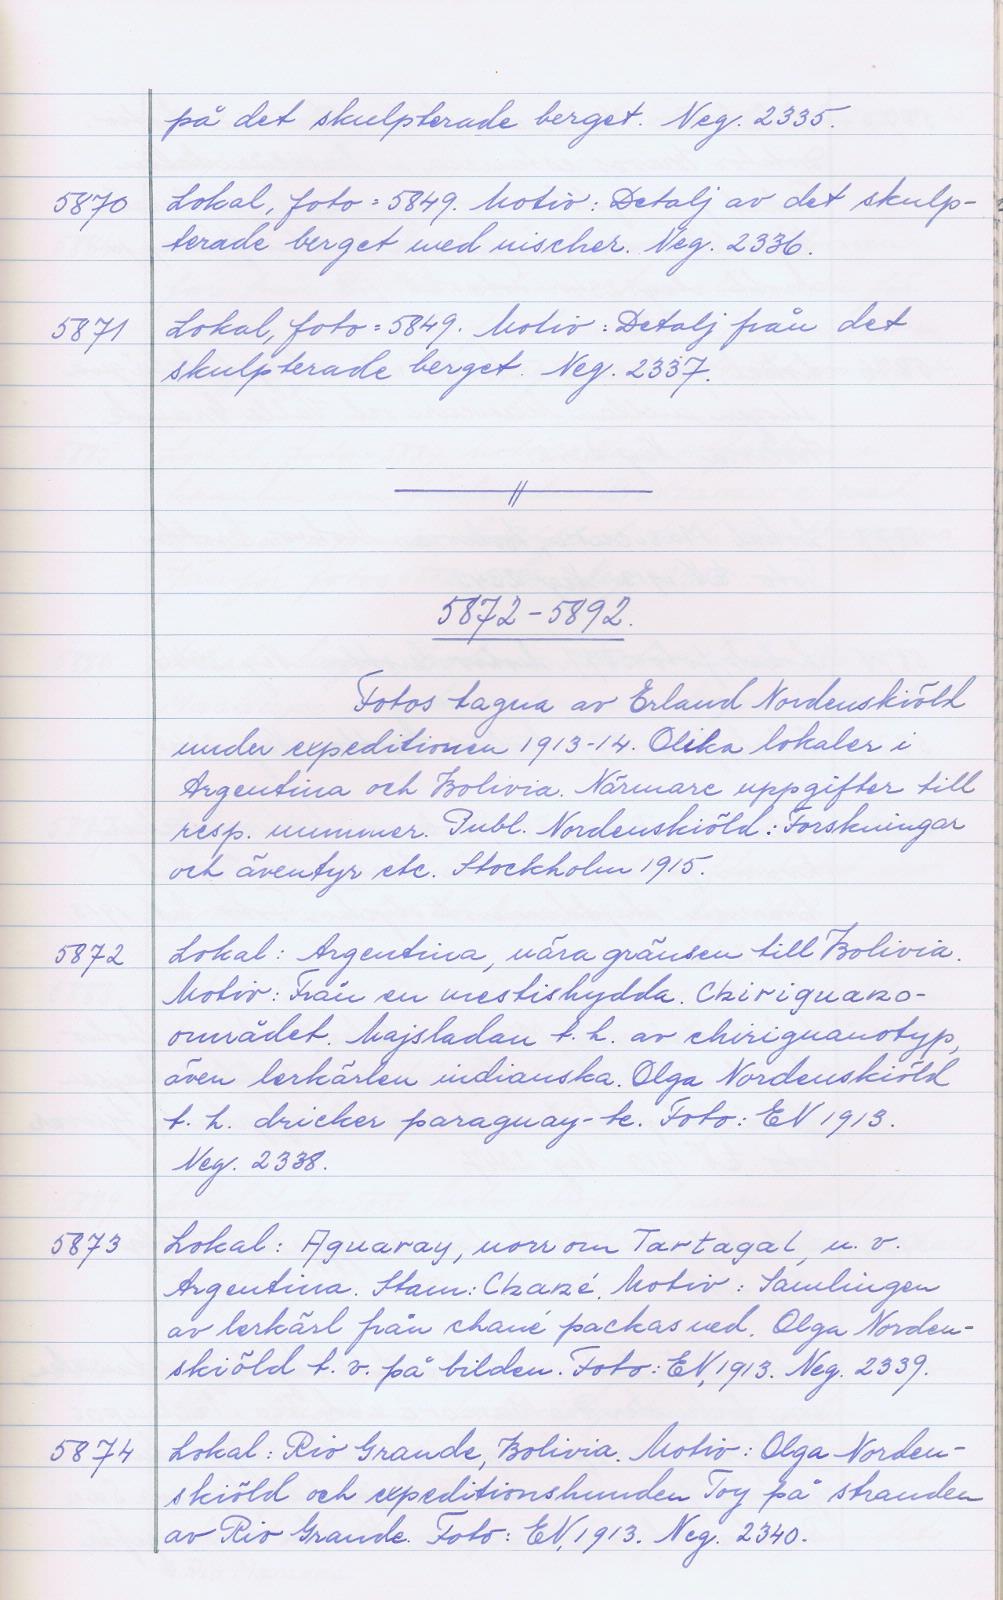 på det skulpterade berget. Neg. 2335.
5870 Lokal, foto = 5849. Motiv: Detalj av det skulp-
terade berget med nischer. Neg. 2336.
5871 Lokal, foto = 5849. Motiv: Detalj från det
skulpterade berget. Neg. 2337.
5872-5892.
Fotos tagna av Erland Nordenskiöld
under expeditionen 1913-14. Olika lokaler i
Argentina och Bolivia. Närmare uppgifter till
resp. nummer. Publ. Nordenskiöld: Forskningar
och äventyr etc. Stockholm 1915.
5872 Lokal: Argentina, nära gränsen till Bolivia.
Motiv: Från en mestishydda. Chiriguano-
området. Majsladan t. h. av chiriguanotyp,
även lerkärlen indianska. Olga Nordenskiöld
t. h. dricker paraguay-te. Foto: EN 1913.
Neg. 2338.
5873 Lokal: Aguaray, norr om Tartagal, n. v.
Argentina. Stam: Chané. Motiv: Samlingen
av lerkärl från chané packas ned. Olga Norden-
skiöld t. v. på bilden. Foto: EN, 1913. Neg. 2339.
5874 Lokal: Rio Grande, Bolivia. Motiv: Olga Norden-
skiöld och expeditionshunden Toy på stranden
av Rio Grande. Foto: EN, 1913. Neg. 2340.